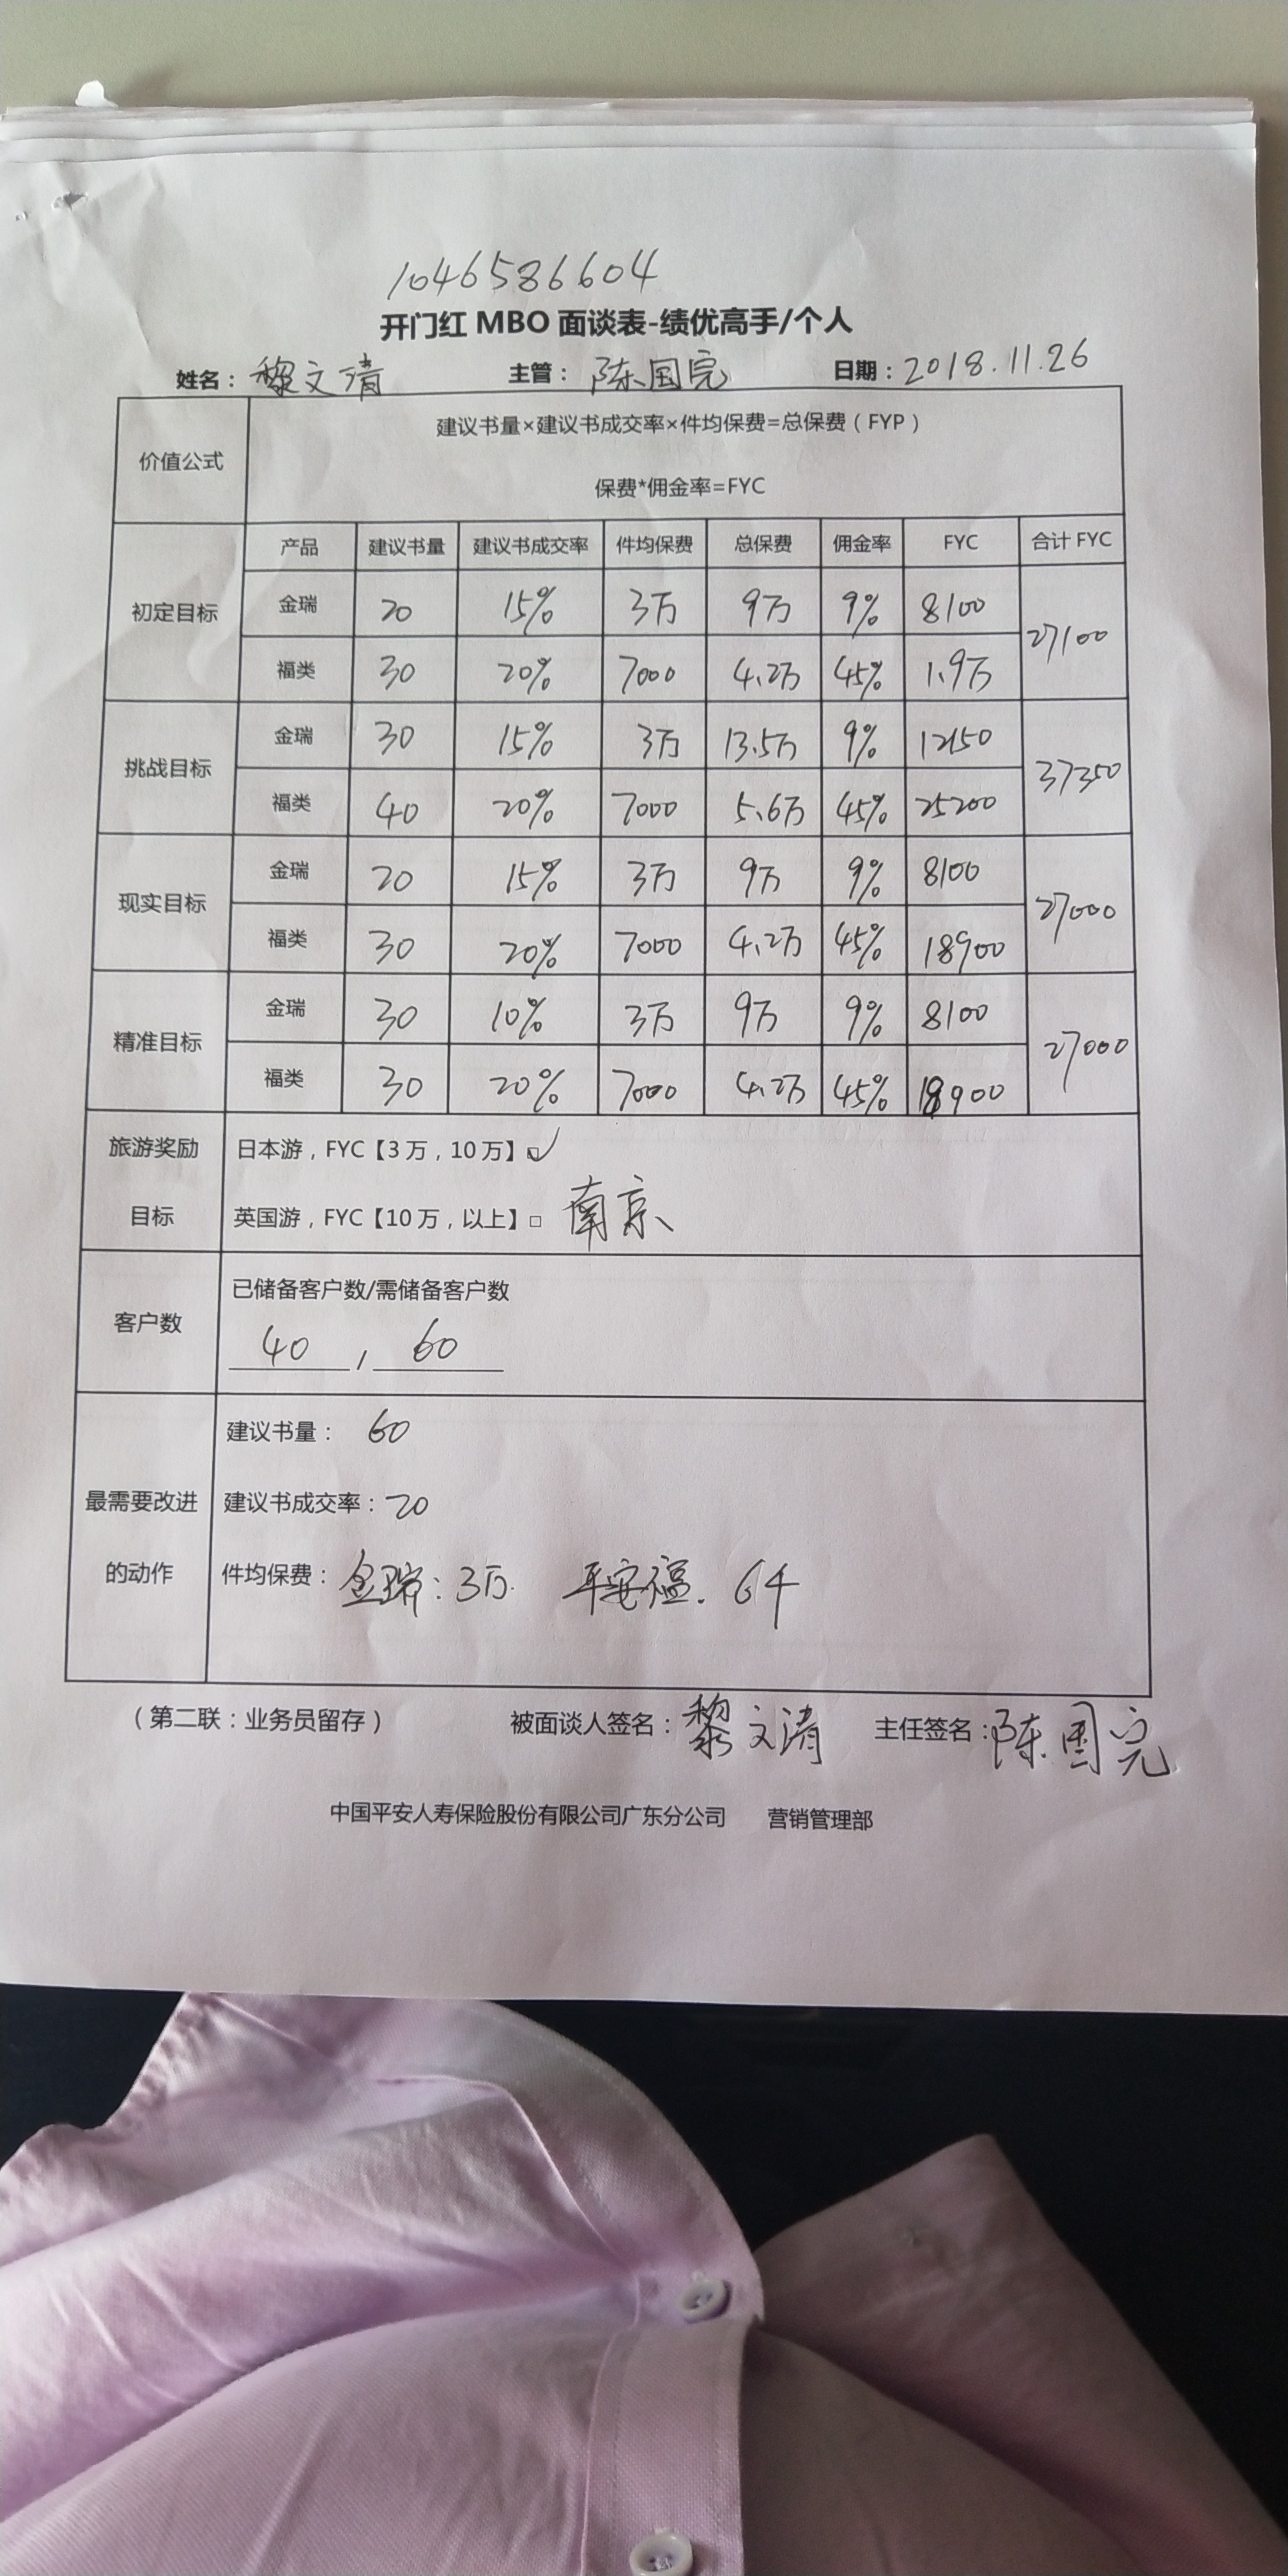 1046586604
开门红 MBO 面谈表-绩优高手/个人
姓名：黎文清 主管：陈国完 日期：2018.11.26
价值公式 建议书量×建议书成交率×件均保费=总保费（FYP）
保费*佣金率=FYC
产品 建议书量 建议书成交率 件均保费 总保费 佣金率 FYC 合计 FYC
初定目标 金瑞 20 15% 3万 9万 9% 8100 27100
福类 30 20% 7000 4.2万 45% 1.9万
挑战目标 金瑞 30 15% 3万 13.5万 9% 12150 37350
福类 40 20% 7000 5.6万 45% 25200
现实目标 金瑞 20 15% 3万 9万 9% 8100 27000
福类 30 20% 7000 4.2万 45% 18900
精准目标 金瑞 30 10% 3万 9万 9% 8100 27000
福类 30 20% 7000 4.2万 45% 18900
旅游奖励 日本游，FYC【3万，10万】☑
目标 英国游，FYC【10万，以上】□ 南京
客户数 已储备客户数/需储备客户数
40 / 60
建议书量： 60
最需要改进 建议书成交率：20
的动作 件均保费：金瑞：3万. 平安福. 6千
（第二联：业务员留存） 被面谈人签名：黎文清 主任签名：陈国完
中国平安人寿保险股份有限公司广东分公司 营销管理部